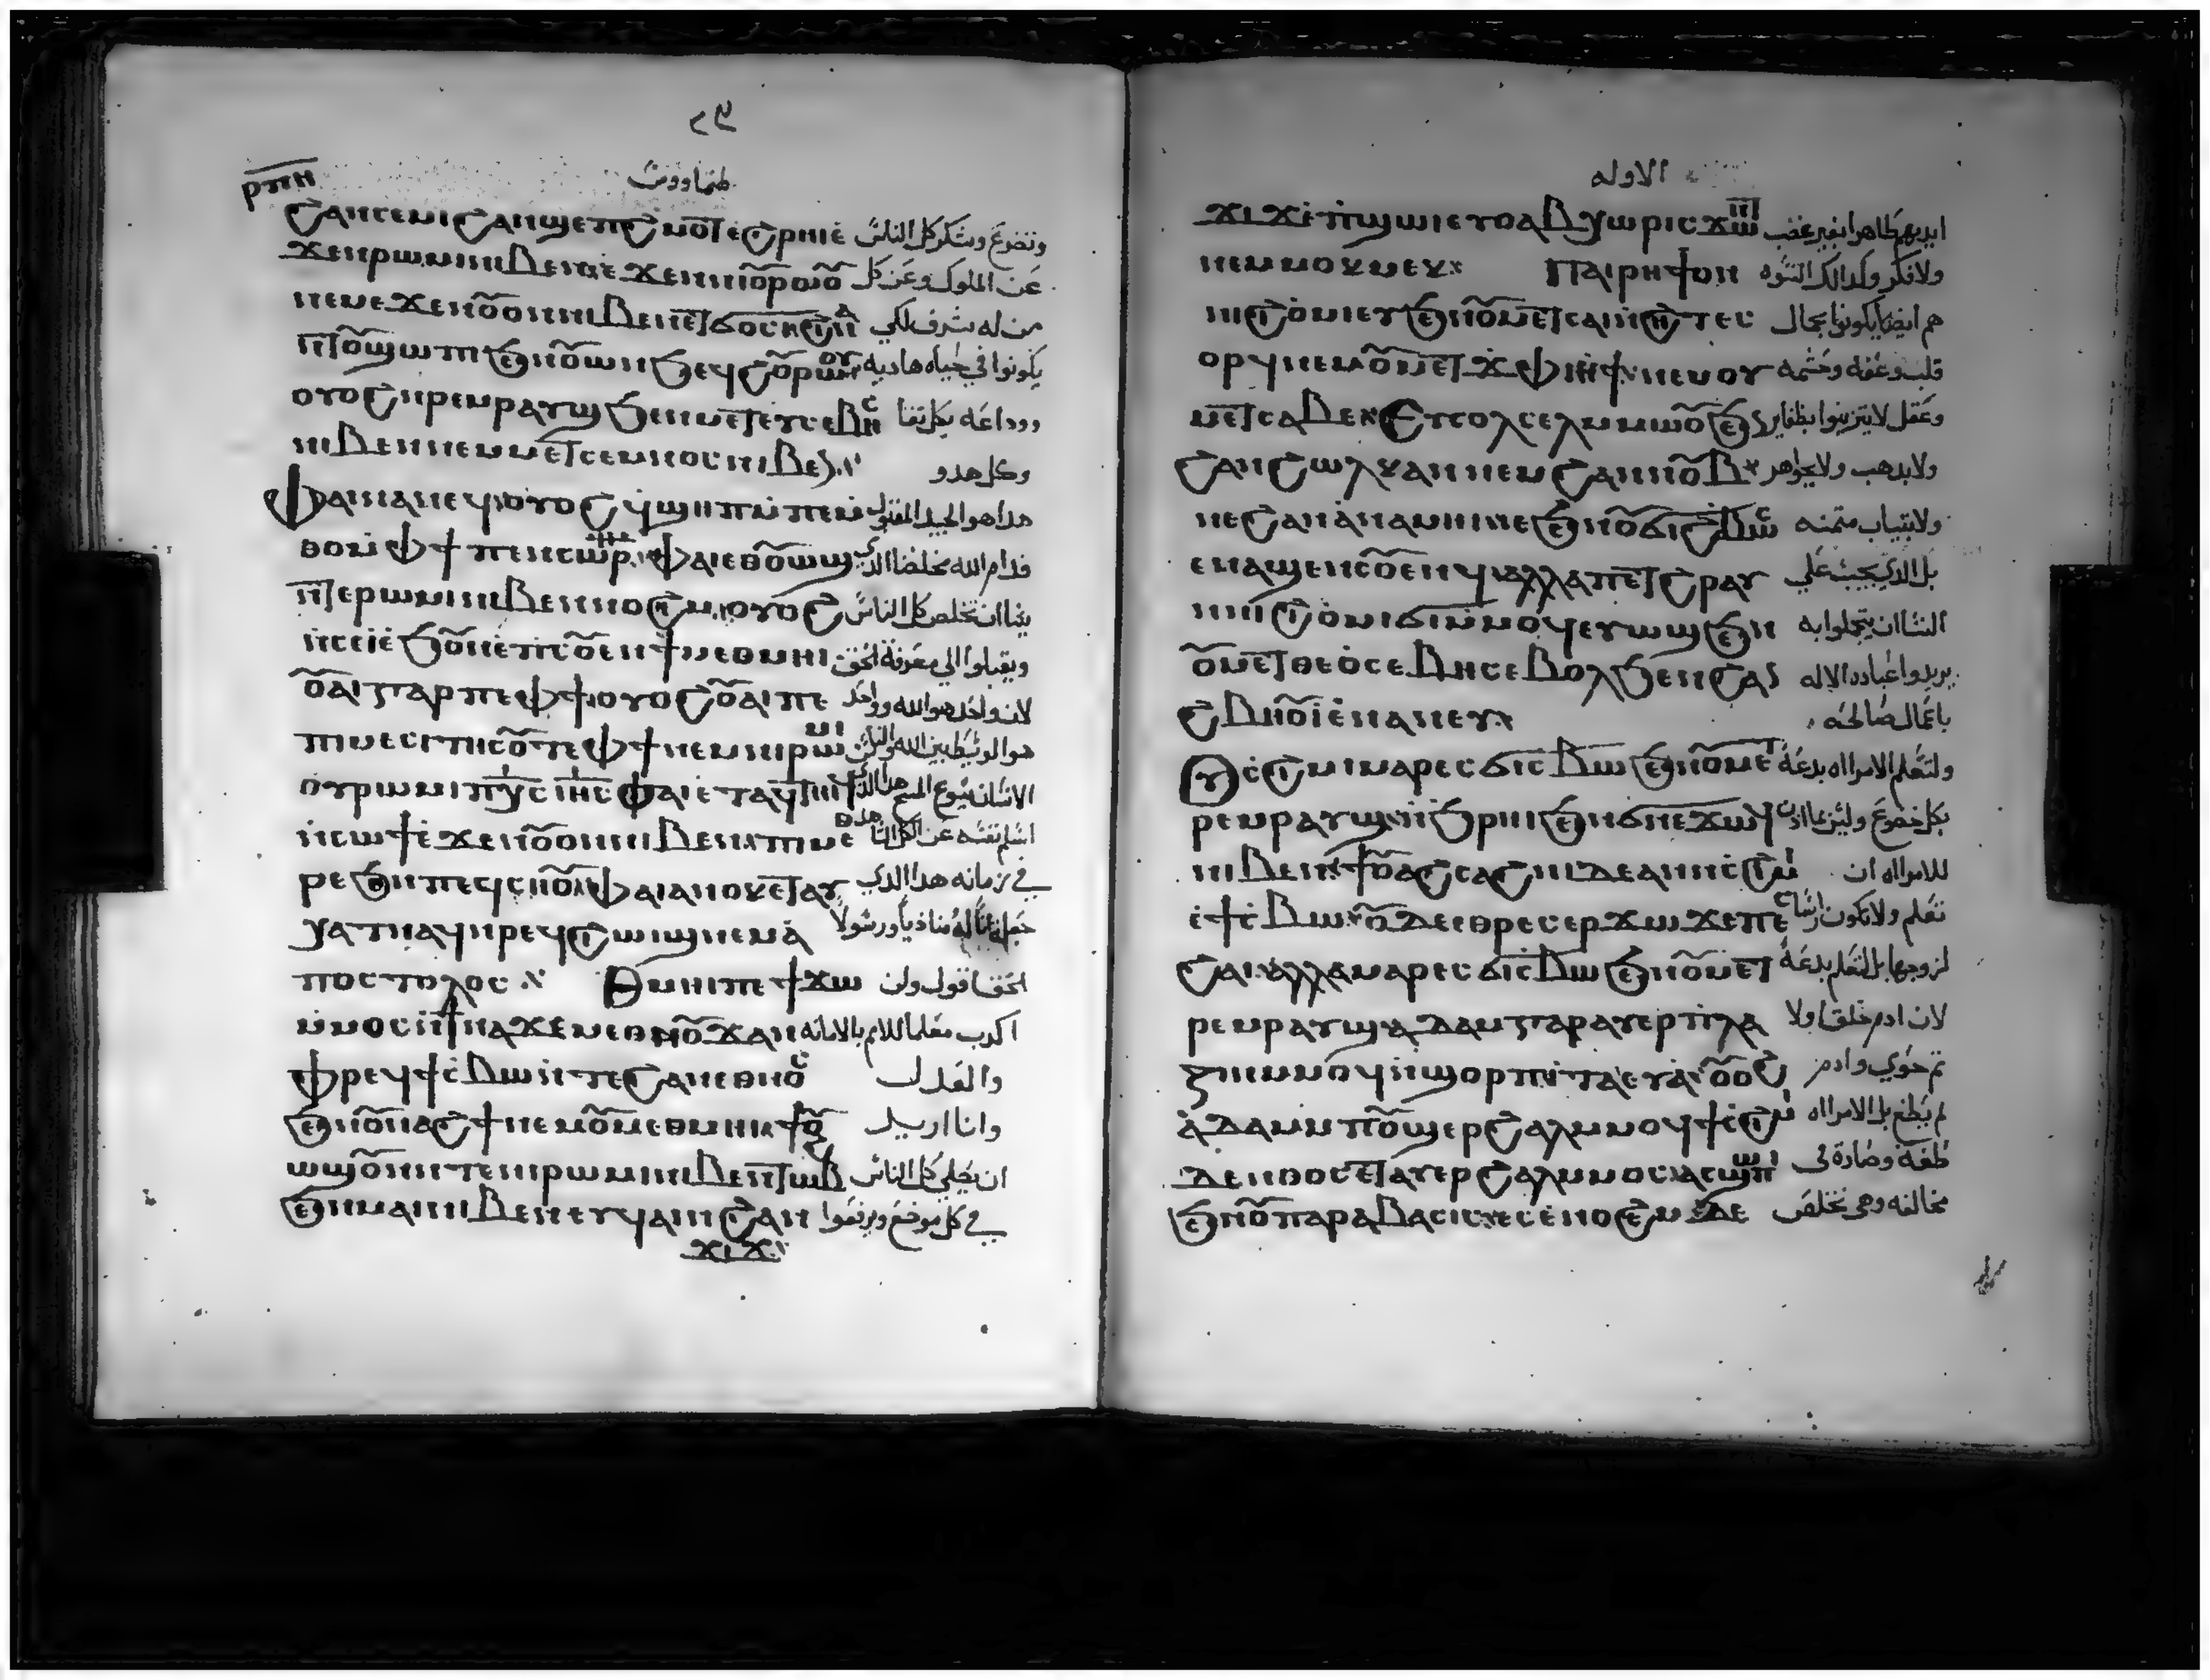 ⲣⲡⲏ
ϩⲁⲛⲥⲉⲙⲓ ϩⲁⲛϣⲉⲡϩⲙⲟⲧ ⲉϩⲣⲏⲓ ⲉ وتضرع وشكر كل الناس
ϫⲉⲛⲣⲱⲙⲓ ⲛⲓⲃⲉⲛ ⲛⲉⲙ ⲉϫⲉⲛ ⲛⲓⲟⲩⲣⲱⲟⲩ عن الملوك وعن كل
ⲛⲉⲙ ⲉϫⲉⲛ ⲟⲩⲟⲛ ⲛⲓⲃⲉⲛ ⲉⲧϭⲟⲥⲓ ϩⲓⲛⲁ من له شرف لكي
ⲛⲧⲟⲩϣⲱⲡⲓ ϧⲉⲛ ⲟⲩⲱⲛϧ ⲉϥϩⲟⲩⲣⲱⲟⲩ يكونوا في حياه هاديه
ⲟⲩⲟϩ ⲛⲣⲉⲙⲣⲁⲩϣ ϧⲉⲛ ⲙⲉⲧⲉⲩⲥⲉⲃⲏⲥ ووداعه بكل تقا
ⲛⲓⲃⲉⲛ ⲛⲉⲙ ⲙⲉⲧⲥⲉⲙⲛⲟⲥ ⲛⲓⲃⲉⲛ وكل هدو
ⲫⲁⲓ ⲛⲁⲛⲉϥ ⲟⲩⲟϩ ϥϣⲏⲡ ⲙⲡⲉⲙ هدا هو الجيد المقبول
ⲑⲟ ⲙⲫϯ ⲡⲉⲛⲥⲱⲣ ⲫⲁⲓ ⲉⲑⲟⲩⲱϣ قدام الله مخلصنا الدي
ⲛⲧⲉ ⲣⲱⲙⲓ ⲛⲓⲃⲉⲛ ⲛⲟϩⲉⲙ ⲟⲩⲟϩ يشا ان تخلص كل الناس
ⲛⲥⲉⲓ ⲉϧⲟⲩⲛ ⲉⲡⲥⲟⲩⲉⲛ ϯⲙⲉⲑⲙⲏⲓ ويقبلوا الي معرفة الحق
ⲟⲩⲁⲓ ⲅⲁⲣ ⲡⲉ ⲫϯ ⲟⲩⲟϩ ⲟⲩⲁⲓ ⲡⲉ لان واحد هو الله وواحد
ⲡⲓⲙⲉⲥⲓⲧⲏⲥ ⲟⲩⲧⲉ ⲫϯ ⲛⲉⲙ ⲛⲓⲣⲱⲙⲓ هو الوسيط بين الله والناس
ⲟⲩⲣⲱⲙⲓ ⲡⲭⲥ ⲓⲏⲥ ⲫⲁⲓ ⲉⲧⲁϥⲧⲏⲓϥ الانسان يسوع المسيح هدا الدي
ⲛⲥⲱϯ ⲉϫⲉⲛ ⲟⲩⲟⲛ ⲛⲓⲃⲉⲛ ϯⲙⲉⲑⲙⲉⲑ اسلم نفسه عن الكل
ⲣⲉ ϧⲉⲛ ⲡⲉⲥⲥⲏⲟⲩ ⲫⲁⲓ ⲁⲛⲟⲕ ⲉⲧⲁⲩ في زمانه هدا الدي
ⲭⲁⲧ ⲛⲁϥ ⲛⲣⲉϥϩⲓⲱⲓϣ ⲛⲉⲙ ⲁ جعل انا له مناديا ورسولا
ⲡⲟⲥⲧⲟⲗⲟⲥ ⲑⲙⲏⲓ ⲡⲉ ϯϫⲱ الحق اقول ولن
ⲙⲙⲟⲥ ⲛϯⲛⲁϫⲉ ⲙⲉⲑⲛⲟⲩϫ ⲁⲛ اكدب معلما للامم بالامانه
ⲫⲣⲉϥϯⲥⲃⲱ ⲛⲧⲉ ϩⲁⲛⲉⲑⲛⲟⲥ والعدل
ϧⲉⲛ ⲟⲩⲛⲁϩϯ ⲛⲉⲙ ⲟⲩⲙⲉⲑⲙⲏⲓ ϯⲟⲩ وانا اريد
ⲱϣ ⲟⲩⲛ ⲛⲧⲉ ⲛⲓⲣⲱⲙⲓ ⲛⲓⲃⲉⲛ ⲧⲱⲃϩ ان يصلي كل الناس
ϧⲉⲛ ⲙⲁⲓ ⲛⲓⲃⲉⲛ ⲉⲩϥⲁⲓ ⲛϩⲁⲛ في كل موضع ويرفعوا
ϫⲓϫ
الاوله
ϫⲓϫ ⲉⲡϣⲱⲓ ⲉⲩⲟⲩⲁⲃ ⲭⲱⲣⲓⲥ ϫⲱⲛⲧ ايديهم طاهرا بغير غضب
ⲛⲉⲙ ⲙⲟⲕⲙⲉⲕ ⲡⲁⲓⲣⲏϯ ⲟⲛ ولا فكر وكدالك النسوه
ⲛⲓϩⲓⲟⲙⲓ ⲉⲩϧⲉⲛ ⲟⲩⲙⲉⲧⲥⲁⲓⲛϩⲏⲧ ⲉⲥ هم ايضا يكونوا بجال
ⲟⲣϥ ⲛⲉⲙ ⲟⲩⲙⲉⲧϫⲫⲓⲏⲧ ⲛⲉⲙ ⲟⲩ قلب وعفه وحشمه
ⲙⲉⲧⲥⲁⲃⲉ ⲉⲩⲥⲟⲗⲥⲉⲗ ⲙⲙⲱⲟⲩ ϧⲉⲛ وعقل لا يتزينوا بظفاير
ϩⲁⲛϩⲱⲗⲕ ⲁⲛ ⲛⲉⲙ ϩⲁⲛⲛⲟⲩⲃ ولا بدهب ولا بجواهر
ⲛⲉⲙ ϩⲁⲛⲁⲛⲁⲙⲏⲓ ⲛⲉⲙ ϧⲉⲛ ⲟⲩϭⲓϩⲃⲱⲥ ولا بتياب متمنه
ⲉⲛⲁϣⲉⲛⲥⲟⲩⲉⲛϥ ⲁⲗⲗⲁ ⲡⲉⲧϩⲣⲁⲩ بل الدي يجب علي
ⲛⲛⲓϩⲓⲟⲙⲓ ϭⲓ ⲙⲙⲟϥ ⲉⲩⲱϣ ϧⲉⲛ النسا ان يتحلوا به
ⲟⲩⲙⲉⲧⲑⲉⲟⲥⲉⲃⲏⲥ ⲉⲃⲟⲗ ϧⲉⲛ ϩⲁⲛ يريدوا عباده الاله
ϩⲃⲏⲟⲩⲓ ⲉⲛⲁⲛⲉⲩ باعمال صالحه
ⲟⲩⲥϩⲓⲙⲓ ⲙⲁⲣⲉⲥϭⲓⲥⲃⲱ ϧⲉⲛ ⲟⲩⲙⲉⲧ ولتتعلم الامراه بدعة
ⲣⲉⲙⲣⲁⲩϣ ⲛϧⲣⲏⲓ ϧⲉⲛ ϭⲛⲉϫⲱϥ بكل خضوع
ⲛⲓⲃⲉⲛ ϯⲟⲩⲁϩⲥⲁϩⲛⲓ ⲇⲉ ⲁⲛ ⲛⲥϩⲓⲙⲓ للامراه ان
ⲉϯⲥⲃⲱ ⲟⲩⲇⲉ ⲉⲑⲣⲉⲥⲉⲣϫⲱϫ ⲉⲡⲉⲥ تعلم ولا تكون
ϩⲁⲓ ⲁⲗⲗⲁ ⲙⲁⲣⲉⲥϭⲓⲥⲃⲱ ϧⲉⲛ ⲟⲩⲙⲉⲧ لزوجها بل لتتعلم بدعة
ⲣⲉⲙⲣⲁⲩϣ ⲁⲇⲁⲙ ⲅⲁⲣ ⲁⲩⲉⲣⲡⲗⲁ لان ادم خلق اولا
ⲍⲓⲛ ⲙⲙⲟϥ ⲛϣⲟⲣⲡ ⲓⲧⲁ ⲉⲩⲁ ⲟⲩⲟϩ تم حوي وادم
ⲁⲇⲁⲙ ⲙⲡⲟⲩϣⲉⲣϩⲁⲗ ⲙⲙⲟϥ ϯⲥϩⲓⲙⲓ لم يطغ بل الامراه
ⲇⲉ ⲛⲑⲟⲥ ⲉⲧⲁⲩⲉⲣϩⲁⲗ ⲙⲙⲟⲥ ⲁⲥϣⲱⲡⲓ طغت وصارة في
ϧⲉⲛ ⲟⲩⲡⲁⲣⲁⲃⲁⲥⲓⲥ ⲉⲥⲉⲛⲟϩⲉⲙ ⲇⲉ مخالفه وهي تخلص